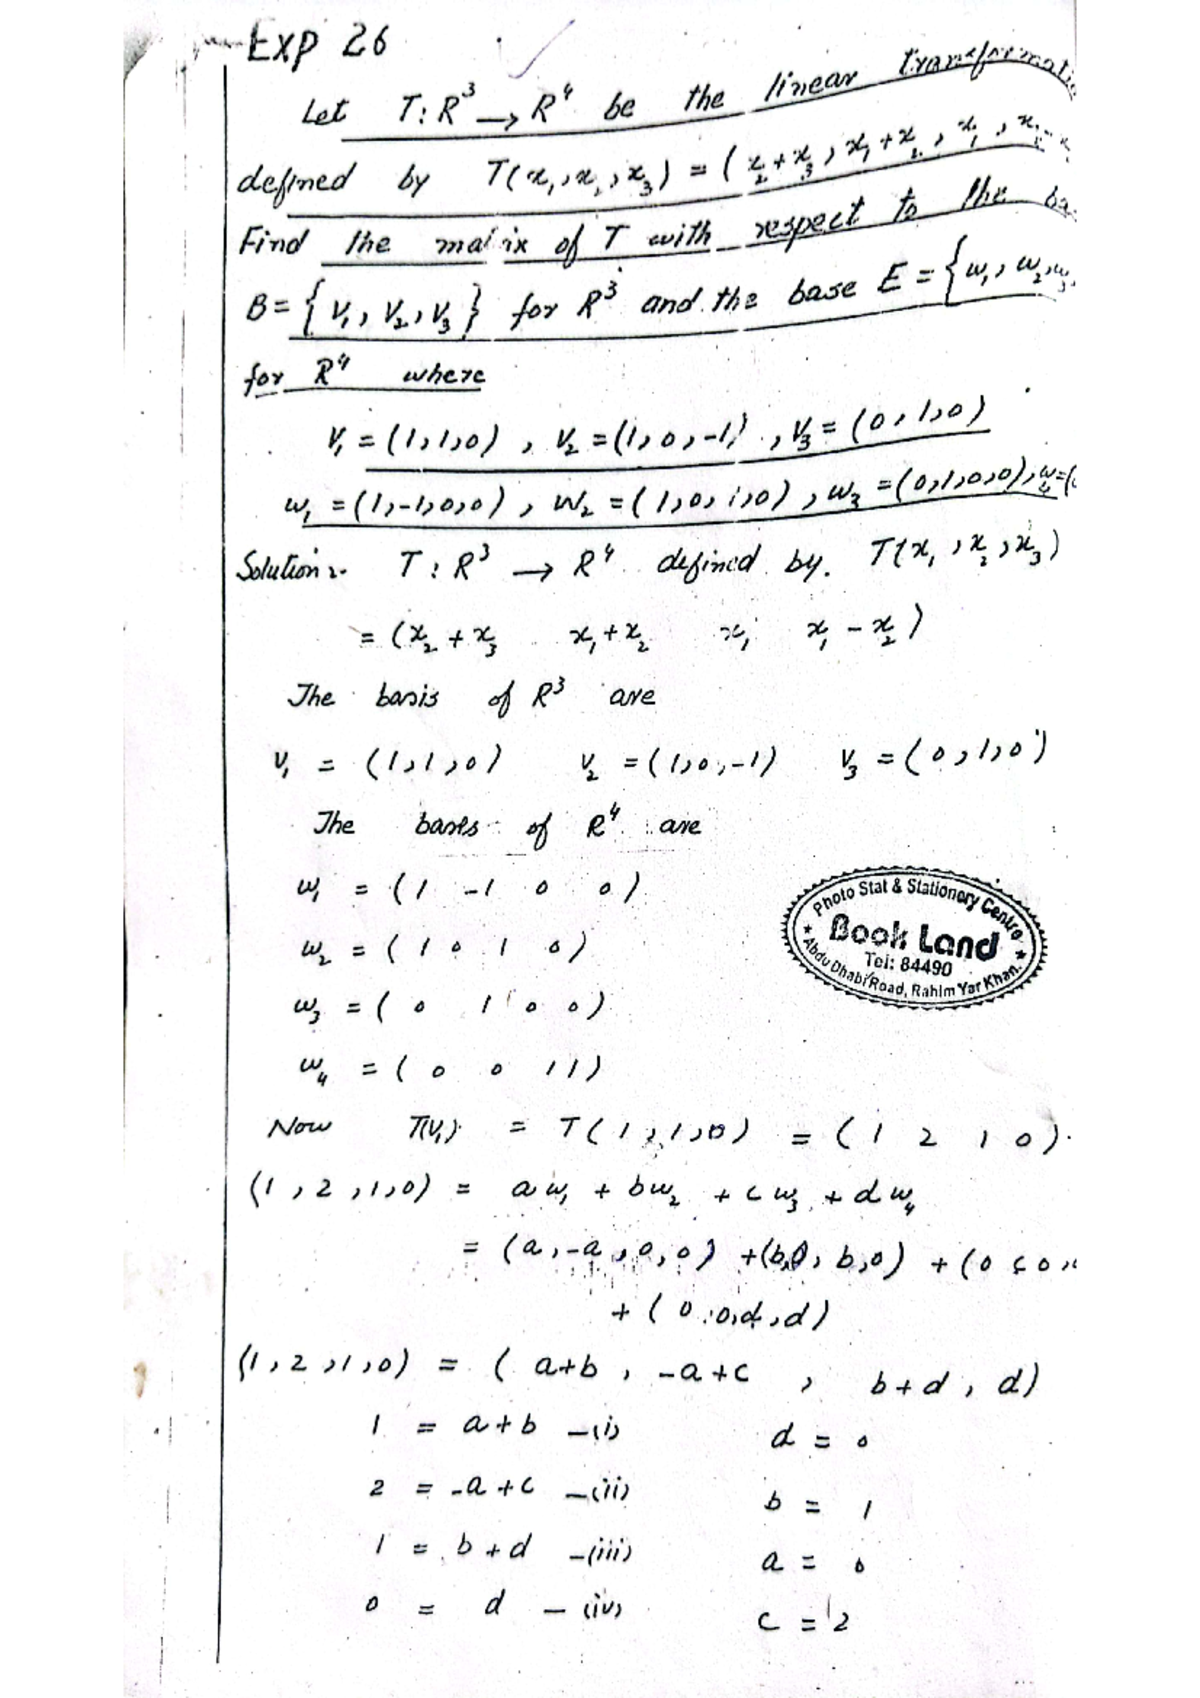 Exp 26
Let T: R³ → R⁴ be the linear
defined by T(x₁, x₂, x₃) = (x₂+x₃, x₁+x₂, x₁,
Find the matrix of T with respect to the
B = { V₁, V₂, V₃ } for R³ and the base E = { w₁, w₂, w₃
for R⁴ where
V₁ = (1,1,0) , V₂ = (1,0,-1) , V₃ = (0,1,0)
w₁ = (1,-1,0,0) , W₂ = (1,0,1,0) , w₃ = (0,1,0,0), w₄ = (
Solution :- T : R³ → R⁴ defined by. T(x₁, x₂, x₃)
= (x₂ + x₃ x₁ + x₂ x₁ x₁ - x₂ )
The basis of R³ are
V₁ = (1,1,0) V₂ = (1,0,-1) V₃ = (0,1,0)
The bases of R⁴ are
w₁ = (1 -1 0 0)
w₂ = (1 0 1 0)
w₃ = (0 1 0 0)
w₄ = (0 0 1 1)
Photo Stat & Stationery Centre
Book Land
Tel: 84490
Abdu Dhabi Road, Rahim Yar Khan.
Now T(V₁) = T(1,1,0) = (1 2 1 0).
(1,2,1,0) = aw₁ + bw₂ + cw₃ + dw₄
= (a,-a,0,0) +(b,0,b,0) + (0 c 0
+ (0,0,d,d)
(1,2,1,0) = ( a+b , -a+c , b+d, d)
1 = a+b -(i) d = 0
2 = -a+c -(ii) b = 1
1 = b+d -(iii) a = 0
0 = d -(iv) c = 2